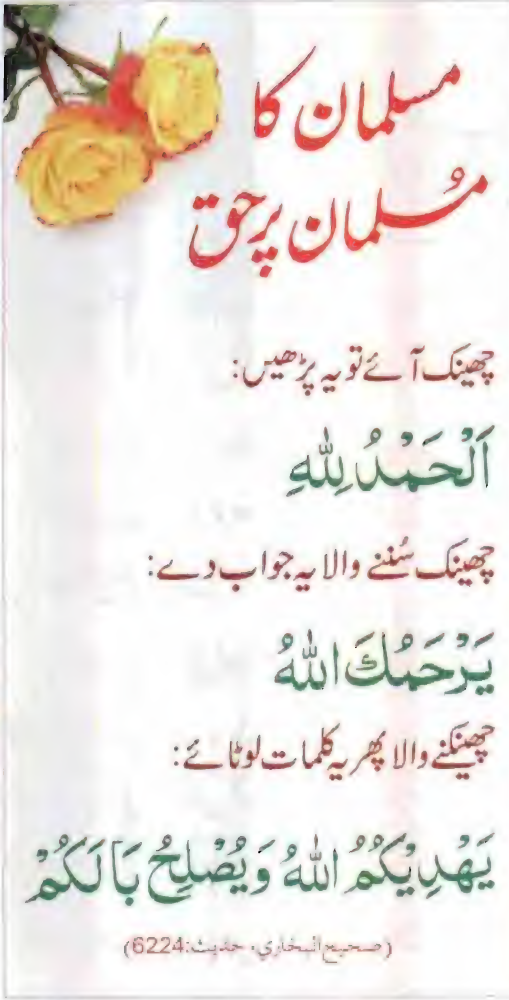 مسلمان کا
مُسلمان پر حق
چھینک آئے تو یہ پڑھیں:
اَلْحَمْدُ لِلّٰهِ
چھینک سُننے والا یہ جواب دے:
يَرْحَمُكَ اللّٰهُ
چھینکنے والا پھر یہ کلمات لوٹائے:
يَهْدِيْكُمُ اللّٰهُ وَيُصْلِحُ بَالَكُمْ
(صحیح البخاري، حدیث:6224)